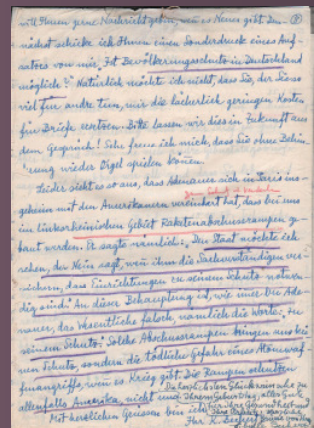 will Ihnen gerne Nachricht geben, wenn es Neues gibt. Dem-
nächst schicke ich Ihnen einen Sonderdruck eines Auf-
satzes von mir, „Ist Bevölkerungsschutz in Deutschland
möglich?" Natürlich möchte ich nicht, dass Sie, der Sie so
viel für andre tun, mir die lächerlich geringen Kosten
für Briefe ersetzen. Bitte lassen wir dies in Zukunft aus
dem Gespräch! Sehr freue ich mich, dass Sie ohne Behin-
derung wieder Orgel spielen können.
Leider sieht es so aus, dass Adenauer sich in Paris ins-
geheim mit den Amerikanern vereinbart hat, dass bei uns
im linksrheinischen Gebiet Raketenabschussrampen ge-
baut werden. Er sagte nämlich: „Den Staat möchte ich
sehen, der Nein sagt, wenn ihm die Sachverständigen ver-
sichern, dass Einrichtungen zu seinem Schutz notwen-
dig sind." An dieser Behauptung ist, wie immer bei Ade-
nauer, das Wesentliche falsch, nämlich die Worte: zu
seinem Schutz. Solche Abschussrampen bringen uns kei-
nen Schutz, sondern die tödliche Gefahr eines Atomwaf-
fenangriffs, wenn es Krieg gibt. Die Rampen schützen
allenfalls Amerika, nicht uns.
Die herzlichsten Glückwünsche zu
Ihrem Geburtstag, alles Gute
für Ihre Gesundheit und
Mit herzlichen Grüssen bin ich
Ihr K. Bechert